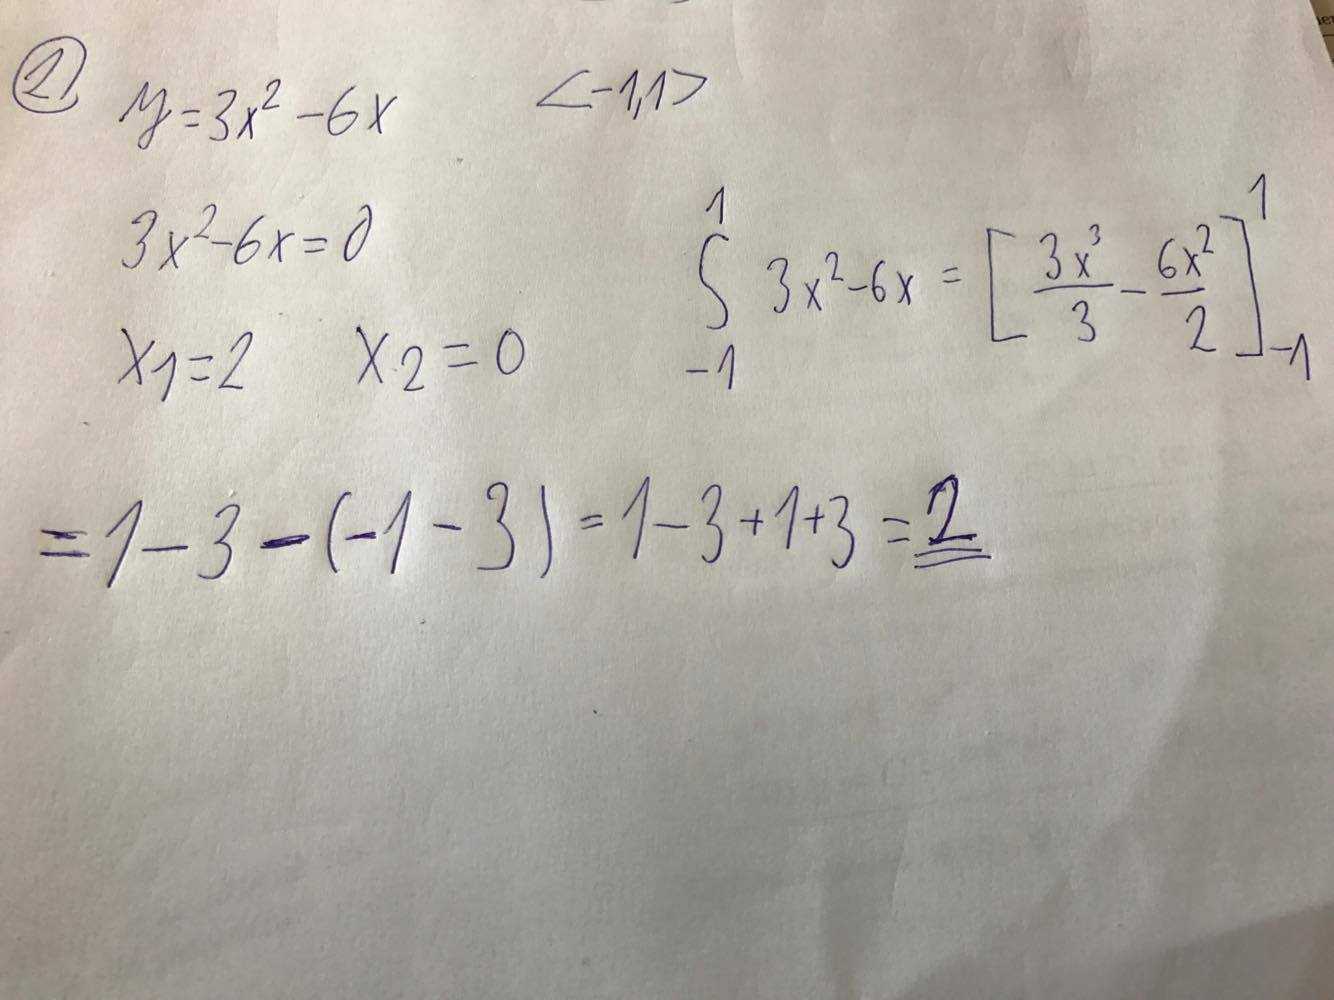 ① y=3x²-6x <-1,1>
3x²-6x=0
x₁=2 x₂=0
∫₋₁¹ 3x²-6x = [3x³/3 - 6x²/2]₋₁¹
=1-3-(-1-3)=1-3+1+3=2